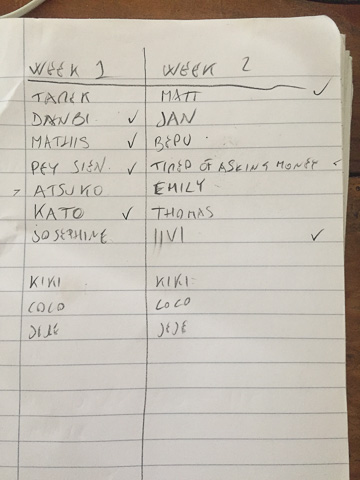 WEEK 1 WEEK 2
TAREK MATT ✓
DANBI ✓ JAN
MATHIS ✓ BEPU
PEY SIEN ✓ TIRED OF ASKING MONEY
ATSUKO EMILY
KATO ✓ THOMAS
JOSEPHINE IIVI ✓
KIKI KIKI
COCO COCO
JEJE JEJE